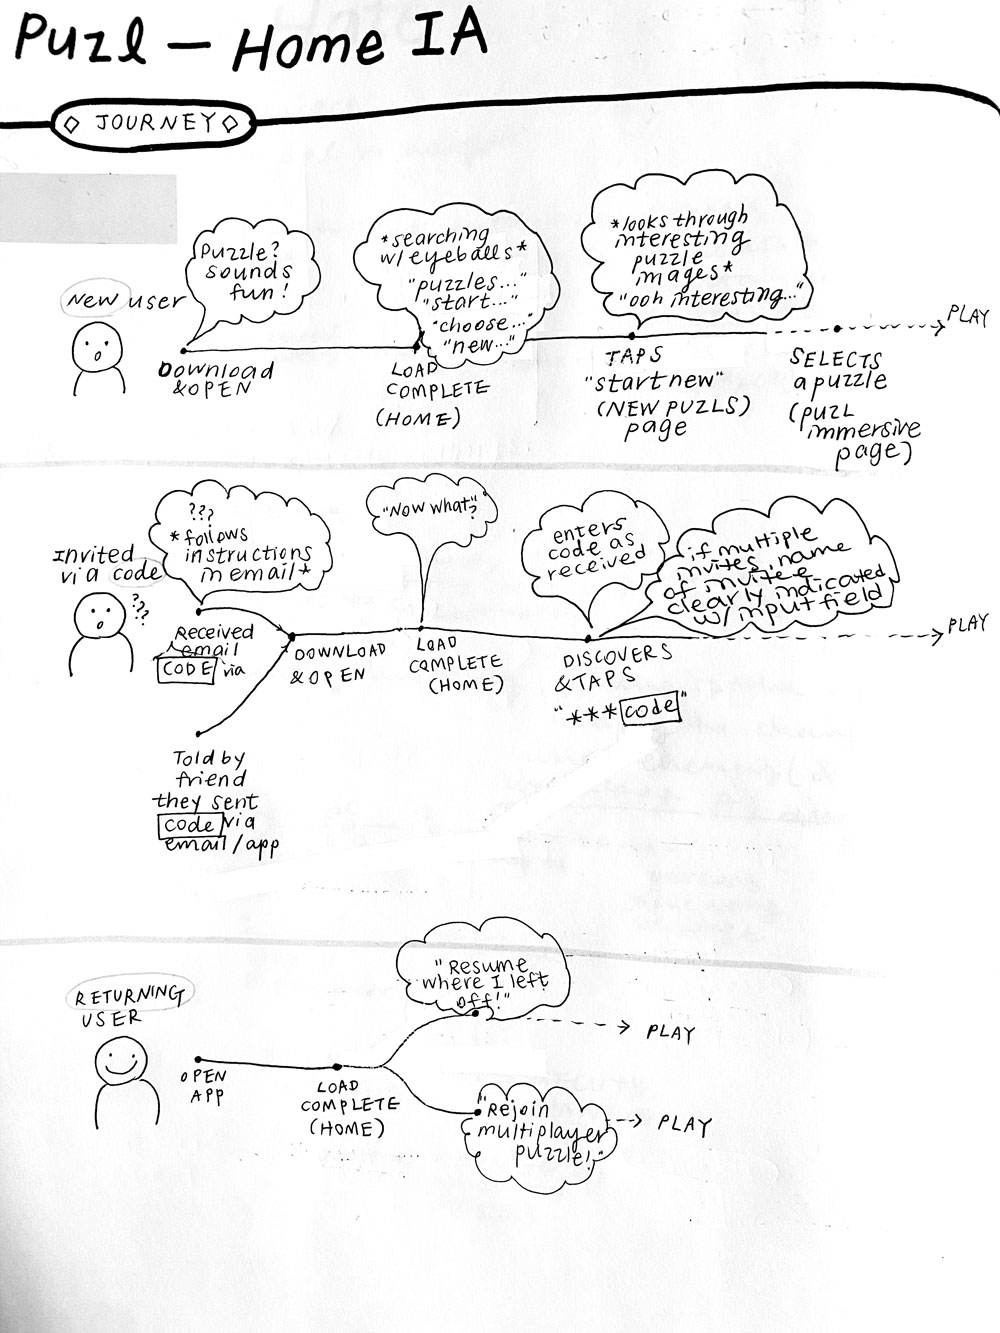 Puzl — Home IA
◇ JOURNEY ◇
Puzzle?
sounds
fun!
*searching
w/ eyeballs*
"puzzles..."
"start..."
"choose..."
"new..."
*looks through
interesting
puzzle
images*
"ooh interesting..."
New user
DOWNLOAD
& OPEN
LOAD
COMPLETE
(HOME)
TAPS
"start new"
(NEW PUZLS)
page
SELECTS
a puzzle
(puzl
immersive
page)
PLAY
Invited
via code
???
???
*follows
instructions
in email*
"Now what?"
enters
code as
received
if multiple
invites, name
of invitee
clearly indicated
w/ input field
Received
email
CODE via
DOWNLOAD
& OPEN
LOAD
COMPLETE
(HOME)
DISCOVERS
& TAPS
"***code"
PLAY
Told by
friend
they sent
code via
email/app
RETURNING
USER
OPEN
APP
LOAD
COMPLETE
(HOME)
"Resume
where I left
off!"
PLAY
"Rejoin
multiplayer
puzzle!"
PLAY